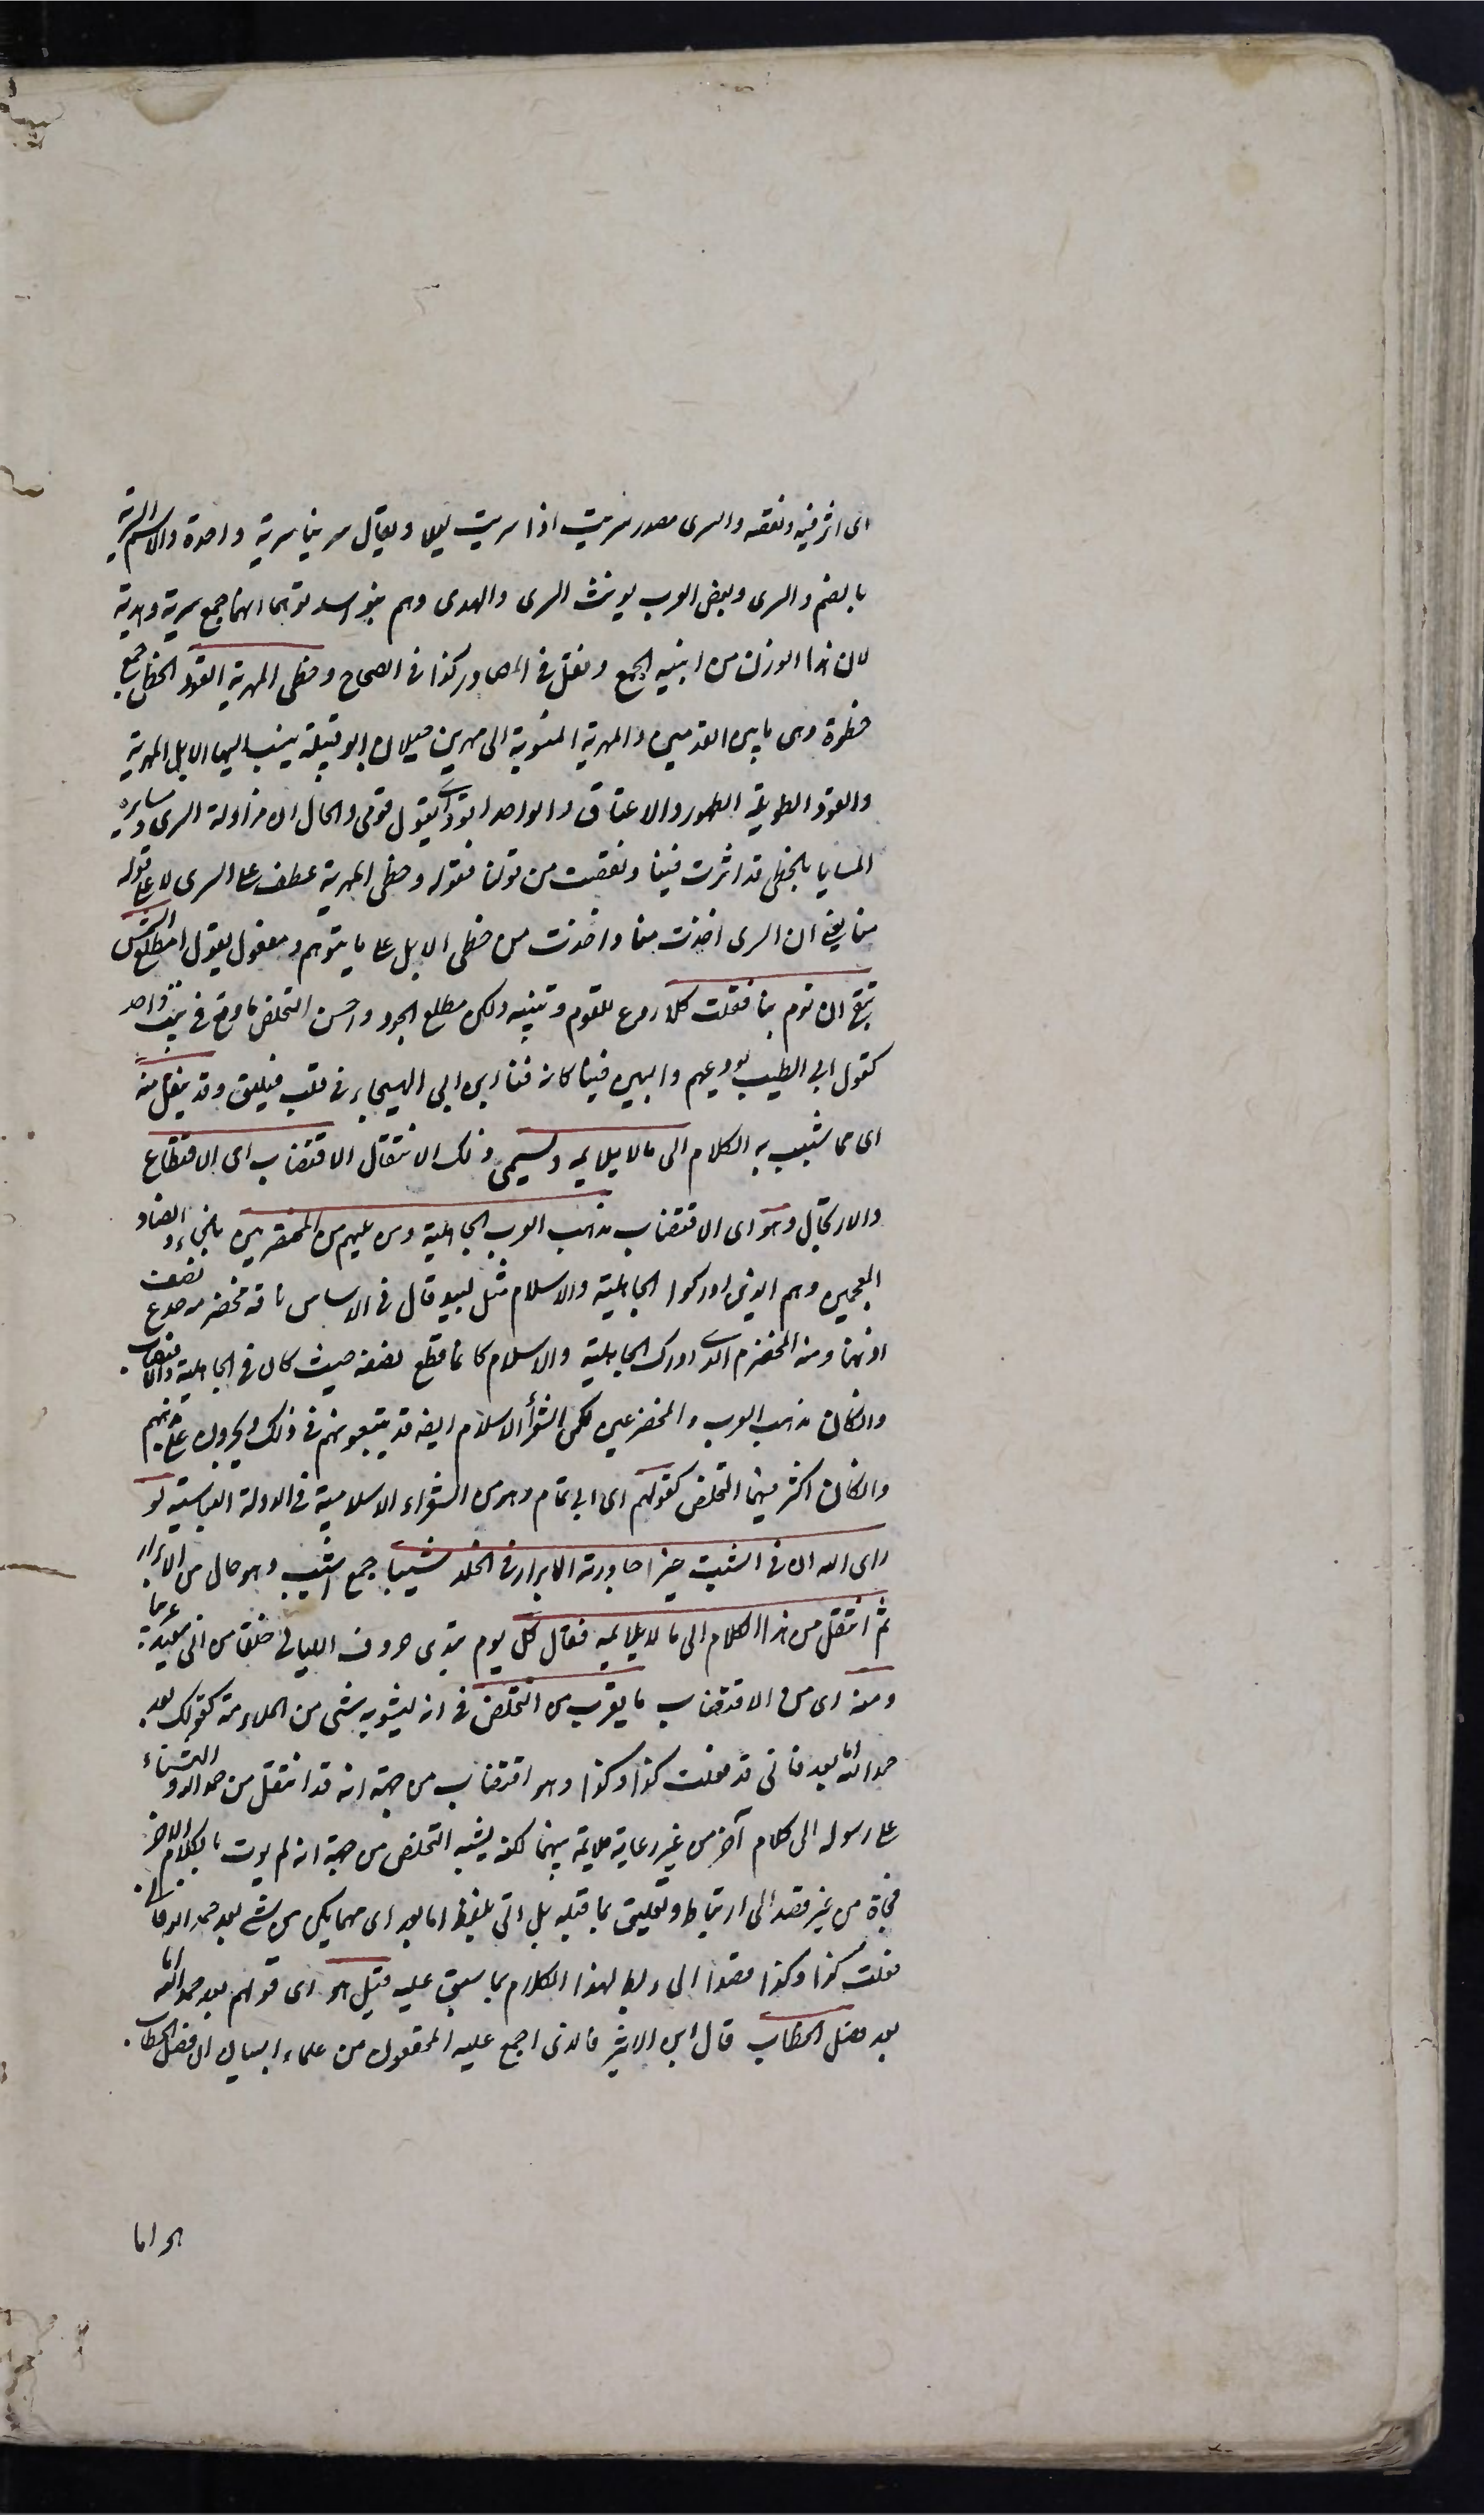 اى اثر فيه ونقصه والسرى مصدر سريت اذا سريت ليلا ويقال سرينا سرية واحدة والاسم السرية
بالضم والسرى وبعض العرب يونث السرى والهدى وهم بنو اسد توهما انهما جمع سرية وهدية
لان هذا الوزن من ابنية الجمع ويقل فى المصادر كذا فى الصحاح وخطى المهرية القود الخطى جمع
خطوة وهى ما بين القدمين والمهرية المنسوبة الى مهرة بن حيدان ابو قبيلة ينسب اليها الابل المهرية
والقود الطويلة الظهور والاعناق والواحد اقود اى يقول قومى والحال ان مزاولة السرى ومسايرة
المطايا بالخطى قد اثرت فينا ونقصت من قوتنا فقوله وخطى المهرية عطف على السرى لا على قوله
منا بمعنى ان السرى اخذت منا واخذت من خطى الابل على ما يتوهم ومفعول يقول امطلع الشمس
تبغى ان تؤم بنا فقلت كلا ردع للقوم وتنبيه ولكن مطلع الجود واحسن التخلص ما وقع فى بيت واحد
كقول ابى الطيب نودعهم والبين فينا كانه قنا ابن ابى الهيجاء فى قلب فيلق وقد ينتقل منه
اى مما شبب به الكلام الى مالا يلايمه ويسمى ذلك الانتقال الاقتضاب اى الاقتطاع
والارتجال وهو اى الاقتضاب مذهب العرب الجاهلية ومن يليهم من المخضرمين بالخاء والضاد
المعجمين وهم الذين ادركوا الجاهلية والاسلام مثل لبيد قال فى الاساس ناقة مخضرمة جدع نصف
اذنها ومنه المخضرم الذى ادرك الجاهلية والاسلام كانما قطع نصفه حيث كان فى الجاهلية والاقتضاب
وان كان مذهب العرب والمخضرمين لكن الشعراء الاسلام ايضا قد يتبعونهم فى ذلك ويجرون على مذهبهم
وان كان اكثر فيهما التخلص كقولهم اى ابى تمام وهو من الشعراء الاسلامية فى الدولة العباسية لو
راى الله ان فى الشيب خيرا جاورته الابرار فى الخلد شيبا جمع اشيب وهو حال من الابرار
ثم انتقل من هذا الكلام الى ما لا يلايمه فقال كل يوم تبدى صروف الليالى خلقا من ابى سعيد غريبا
ومنه اى من الاقتضاب ما يقرب من التخلص فى انه يشوبه شى من الملاءمة كقولك بعد
حمد الله اما بعد فانى قد فعلت كذا وكذا وهو اقتضاب من جهة انه قد انتقل من حمد الله والثناء
على رسوله الى كلام آخر من غير رعاية ملايمة بينهما لكنه يشبه التخلص من جهة انه لم يوت بالكلام الاخر
فجاة من غير قصد الى ارتباط وتعليق بما قبله بل اتى بلفظ اما بعد اى مهما يكن من شئ بعد حمد الله فانى
فعلت كذا وكذا قصدا الى ربط لهذا الكلام بما سبق عليه قيل هو اى قولهم بعد حمد الله اما
بعد فصل الخطاب قال ابن الاثير فالذى اجمع عليه المحققون من علماء البيان ان فصل الخطاب
هو اما